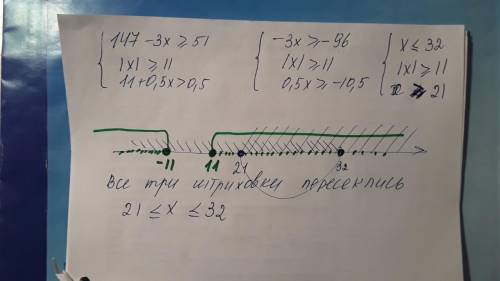 147 - 3x ≥ 51
|x| ≥ 11
11 + 0,5x > 0,5
-3x ≥ -96
|x| ≥ 11
0,5x ≥ -10,5
x ≤ 32
|x| ≥ 11
x ≥ 21
-11 11 21 32
Все три штриховки пересеклись
21 ≤ x ≤ 32